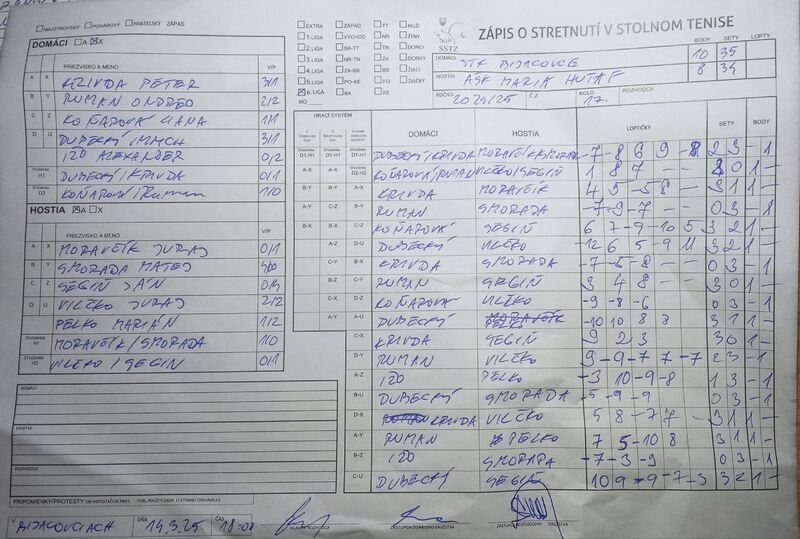 MAJSTROVSKÝ POHÁROVÝ PRIATEĽSKÝ ZÁPAS
DOMÁCI A X
PRIEZVISKO A MENO V/P
A X KRIVDA PETER 3/1
B Y RUMAN ONDREJ 2/2
C Z KOŇAROVÁ LIANA 1/1
D U DUBECKÝ IMRICH 3/1
IZO ALEXANDER 0/2
ŠTVORHRA H1 DUBECKÝ/KRIVDA 0/1
ŠTVORHRA D2 KOŇAROVÁ/Ruman 1/0
HOSTIA A X
PRIEZVISKO A MENO V/P
A X MORAVČÍK JURAJ 0/1
B Y SMORADA MATEJ 4/0
C Z SEGIŇ JÁN 0/4
D U VILČKO JURAJ 2/2
PELKO MARIÁN 1/2
ŠTVORHRA H1 MORAVČÍK/SMORADA 1/0
ŠTVORHRA H2 VILČKO/SEGIŇ 0/1
DOMÁCI
HOSTIA
ROZHODCA
PRIPOMIENKY/PROTESTY
V BIJACOVCIACH DŇA 14.3.25 ČAS 18:00
EXTRA ZÁPAD TT MUŽI
1.LIGA VÝCHOD NR ŽENY
2.LIGA BA-TT TN DORCI
3.LIGA NR-TN ZA DORKY
4.LIGA ZA-BB BB ŽIACI
5.LIGA PO-KE PO ŽIAČKY
6.LIGA BA KE
MO
SSTZ
ZÁPIS O STRETNUTÍ V STOLNOM TENISE
BODY SETY LOPTY
DOMÁCI STK BIJACOVCE 10 35
HOSTIA AŠK MARIA HUTA F 8 34
ROČNÍK 2024/25 Č.Z. KOLO 17. ROZHODCA
HRACÍ SYSTÉM DOMÁCI HOSTIA LOPTIČKY SETY BODY
D1-H1 D1-H1 D1-H1 DUBECKÝ/KRIVDA MORAVČÍK/SMORADA -7 -8 6 9 -8 2 3 -1
A-X A-X D2-H2 KOŇAROVÁ/RUMAN VILČKO/SEGIŇ 1 8 7 3 0 1 -
B-Y B-Y A-X KRIVDA MORAVČÍK 4 5 -5 8 3 1 1 -
A-Y C-Z B-Y RUMAN SMORADA -7 -9 -7 0 3 -1
B-X B-X C-Z KOŇAROVÁ SEGIŇ 6 7 -9 -10 5 3 2 1 -
A-Y D-U DUBECKÝ VILČKO -12 6 5 -9 11 3 2 1 -
C-Y B-X KRIVDA SMORADA -7 -5 -8 0 3 -1
C-Y RUMAN SEGIŇ 3 4 8 3 0 1 -
C-X D-Z KOŇAROVÁ VILČKO -9 -8 -6 0 3 -1
A-Y A-U DUBECKÝ PELKO -10 10 8 8 3 1 1 -
C-X KRIVDA SEGIŇ 9 2 3 3 0 1 -
D-Y RUMAN VILČKO 9 -9 -7 7 -7 2 3 -1
A-Z IZO PELKO -3 10 -9 -8 1 3 -1
B-U DUBECKÝ SMORADA -5 -9 -9 0 3 -1
D-X KRIVDA VILČKO 5 8 -7 7 3 1 1 -
A-Y RUMAN PELKO 7 5 -10 8 3 1 1 -
B-Z IZO SMORADA -7 -3 -9 0 3 -1
C-U DUBECKÝ SEGIŇ 10 9 -9 -7 3 3 2 1 -
HLAVNÝ ROZHODCA ZÁSTUPCA DOMÁCEHO DRUŽSTVA ZÁSTUPCA HOSŤUJÚCEHO DRUŽSTVA